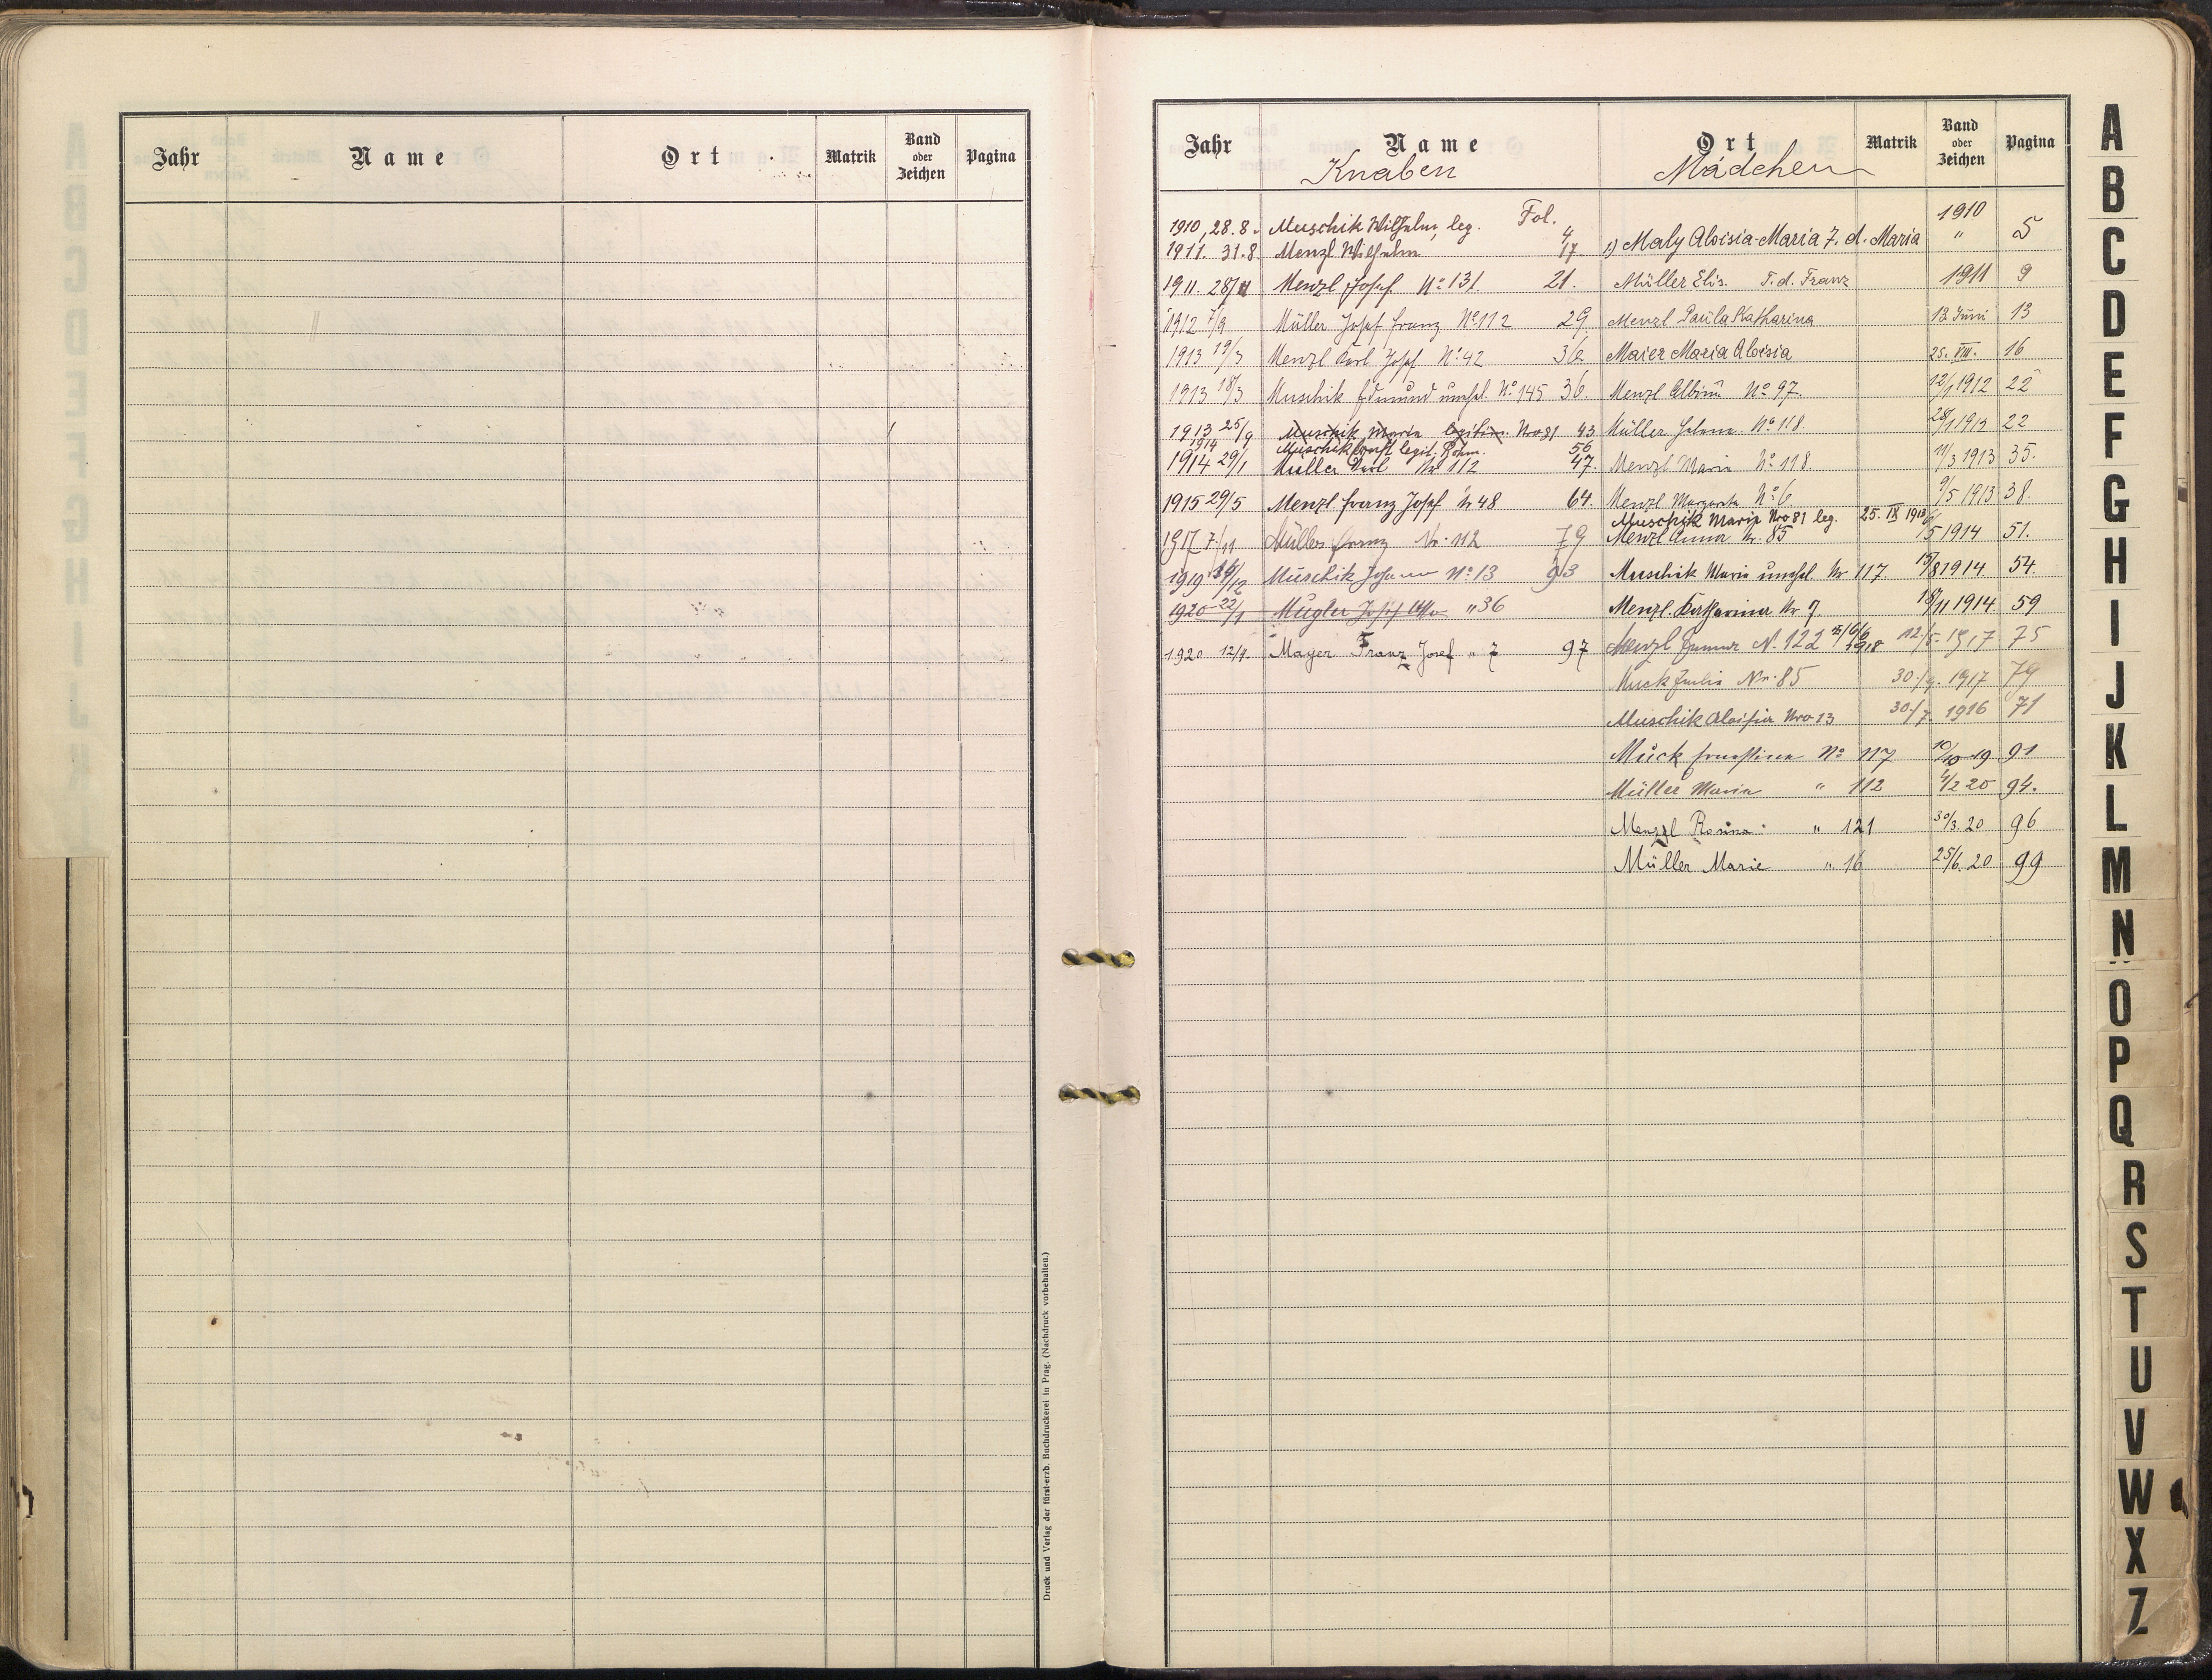 Jahr Name Ort Matrik Band oder Zeichen Pagina
Druck und Verlag der fürst-erzb. Buchdruckerei in Prag. (Nachdruck vorbehalten.)
Jahr Name Ort Matrik Band oder Zeichen Pagina
Knaben Mädchen
1910, 28.8. Muschik Wilhelm, leg. Fol. 4
1911. 31.8. Menzl Wilhelm 17.
1911. Menzl Josef No 131 21.
1912 7/9 Müller Josef Franz No 112 29
1913 19/3 Menzl Karl Josef No 42 36
1913 18/3 Muschik Edmund unehel. No 145 36.
1913 25/9 Muschik Maria legitim. Nro 81 43
1914 Muschik Ernst legit. Böhm. 56
1914 29/1 Müller Karl No 112 47.
1915 29/5 Menzl Franz Josef Nr 48 64.
1917 7./11 Müller Franz Nr. 112 79
1919 /12 Muschik Johann No 13 93
1920 22/1 Mugler Josef Otto " 36
1920 12/4. Mayer Franz Josef " 7 97
1) Maly Aloisia-Maria T. d. Maria 1910 " 5
Müller Elis. T. d. Franz 1911 9
Menzl Paula Katharina 13 Juni 13
Maier Maria Aloisia 25. VIII. 16
Menzl Albina No 97. 12/1 1912 22
Müller Helena No 118 28/1 1912 22
Menzl Maria No 118. 11/3 1913 35.
Menzl Margareta No 6 9/5 1913 38.
Muschik Maria Nro 81 leg. 25. IX 1913
Menzl Anna Nr. 85 /5 1914 51.
Muschik Maria unehel. Nr 117 15/8 1914 54.
Menzl. Katharina Nr 7. 18/11 1914 59
Menzl N. 122 1918 12./5. 1917 75
Muck Julia Nr. 85 30./9. 1917 79
Muschik Aloisia Nro 13 30./7. 1916 71
Muck Ernestina No 117 10/10 19 91
Müller Maria " 112 4/2 20 94.
Menzl Rosina " 121 30/3. 20 96
Müller Marie " 16 25/6. 20 99
A
B
C
D
E
F
G
H
I
J
K
L
M
N
O
P
Q
R
S
T
U
V
W
X
Z